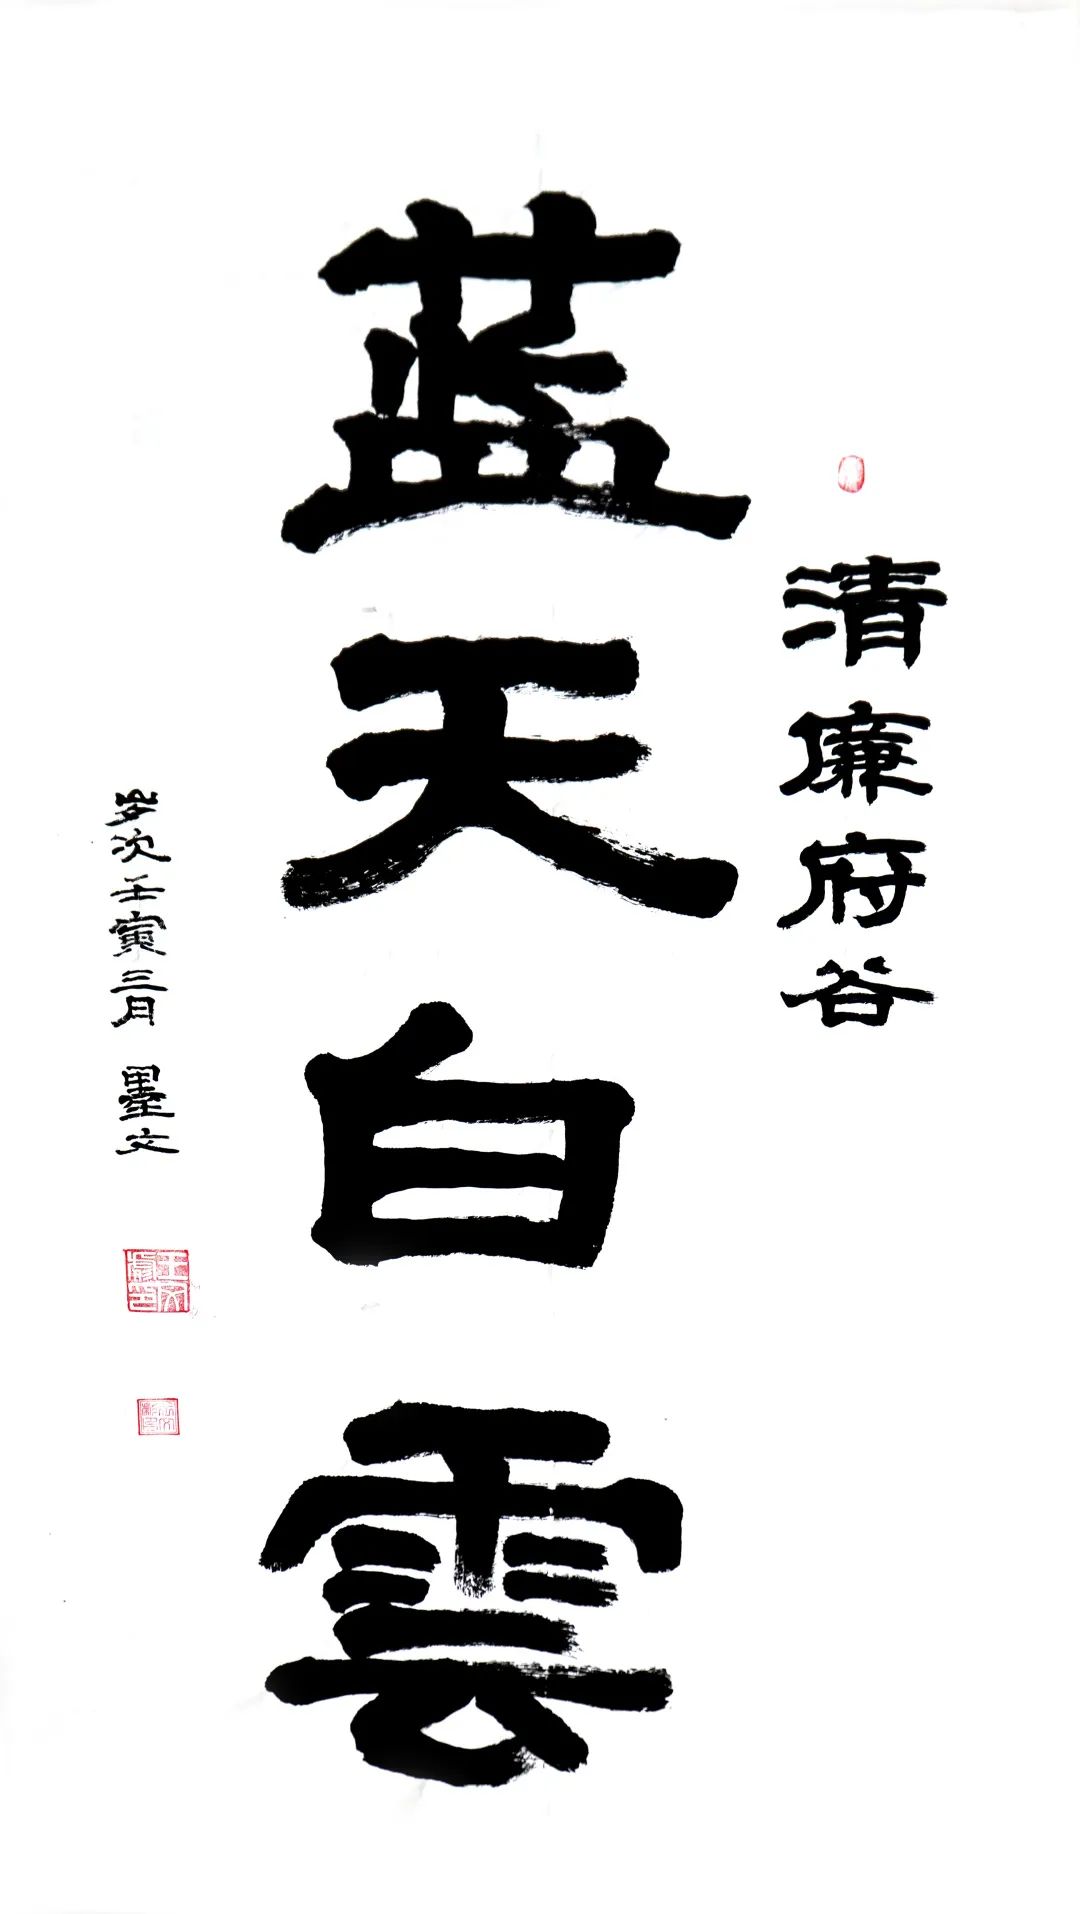 清廉府谷
蓝天白雲
岁次壬寅三月 墨文